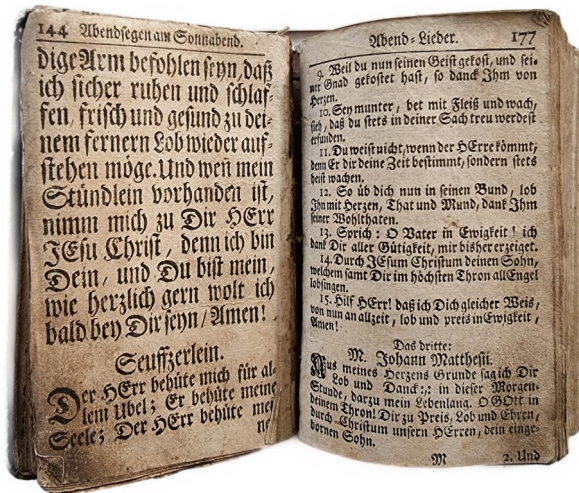 144 Abendsegen am Sonnabend.
dige Arm befohlen seyn, daß
ich sicher ruhen und schlaf-
fen, frisch und gesund zu dei-
nem fernern Lob wieder auf-
stehen möge. Und weñ mein
Stündlein vorhanden ist,
nimm mich zu Dir HErr
JEsu Christ, denn ich bin
Dein, und Du bist mein,
wie herzlich gern wolt ich
bald bey Dir seyn / Amen!
Seuffzerlein.
Der HErr behüte mich für al-
lem Ubel; Er behüte meine
Seele; Der HErr behüte mei
ne
Abend-Lieder. 177
9. Weil du nun seinen Geist gekost, und sei-
ner Gnad gekostet hast, so danck Ihm von
Herzen.
10. Sey munter, bet mit Fleiß und wach,
sieh, daß du stets in deiner Sach treu werdest
erfunden.
11. Du weist nicht, wenn der HErre kömmt,
denn Er dir deine Zeit bestimmt, sondern stets
heist wachen.
12. So üb dich nun in seinen Bund, lob
Ihn mit Herzen, That und Mund, dank Ihm
seiner Wohlthaten.
13. Sprich: O Vater in Ewigkeit! ich
dank Dir aller Gütigkeit, mir bisher erzeiget.
14. Durch JEsum Christum deinen Sohn,
welchem samt Dir im höchsten Thron all Engel
lobsingen.
15. Hilf HErr! daß ich Dich gleicher Weis,
von nun an allzeit, lob und preis in Ewigkeit,
Amen!
Das dritte:
M. Johann Matthesii.
Aus meines Herzens Grunde sag ich Dir
Lob und Danck :,: in dieser Morgen-
Stunde, darzu mein Lebenlang. O GOtt in
deinem Thron! Dir zu Preis, Lob und Ehren,
durch Christum unsern HErren, dein einge-
bornen Sohn.
M 2. Und